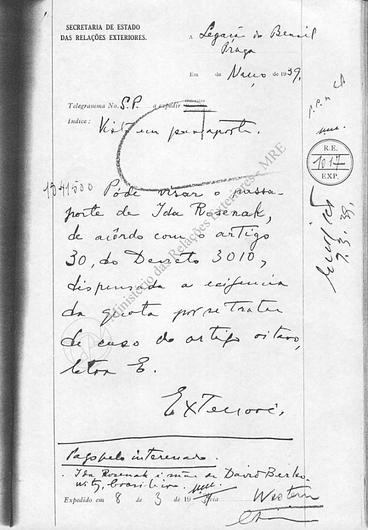 SECRETARIA DE ESTADO
DAS RELAÇÕES EXTERIORES.
A Legação do Brasil
Praga
Em de Março de 1939.
Telegrama No. S.P. a expedir
Indice:
Visto em passaporte.
R.E.
1017
EXP.
Póde visar o passa-
porte de Ida Rosenak,
de acôrdo com o artigo
30, do Decreto 3010,
dispensada a exigencia
da quota por se tratar
de caso do artigo oitavo,
letra E.
Exteriores,
Ministério das Relações Exteriores - MRE
9.3.39.
Pago pelo interessado.
Ida Rosenak é mãe de David Berko-
witz, brasileiro.
Expedido em 8 de 3 de 19
Western